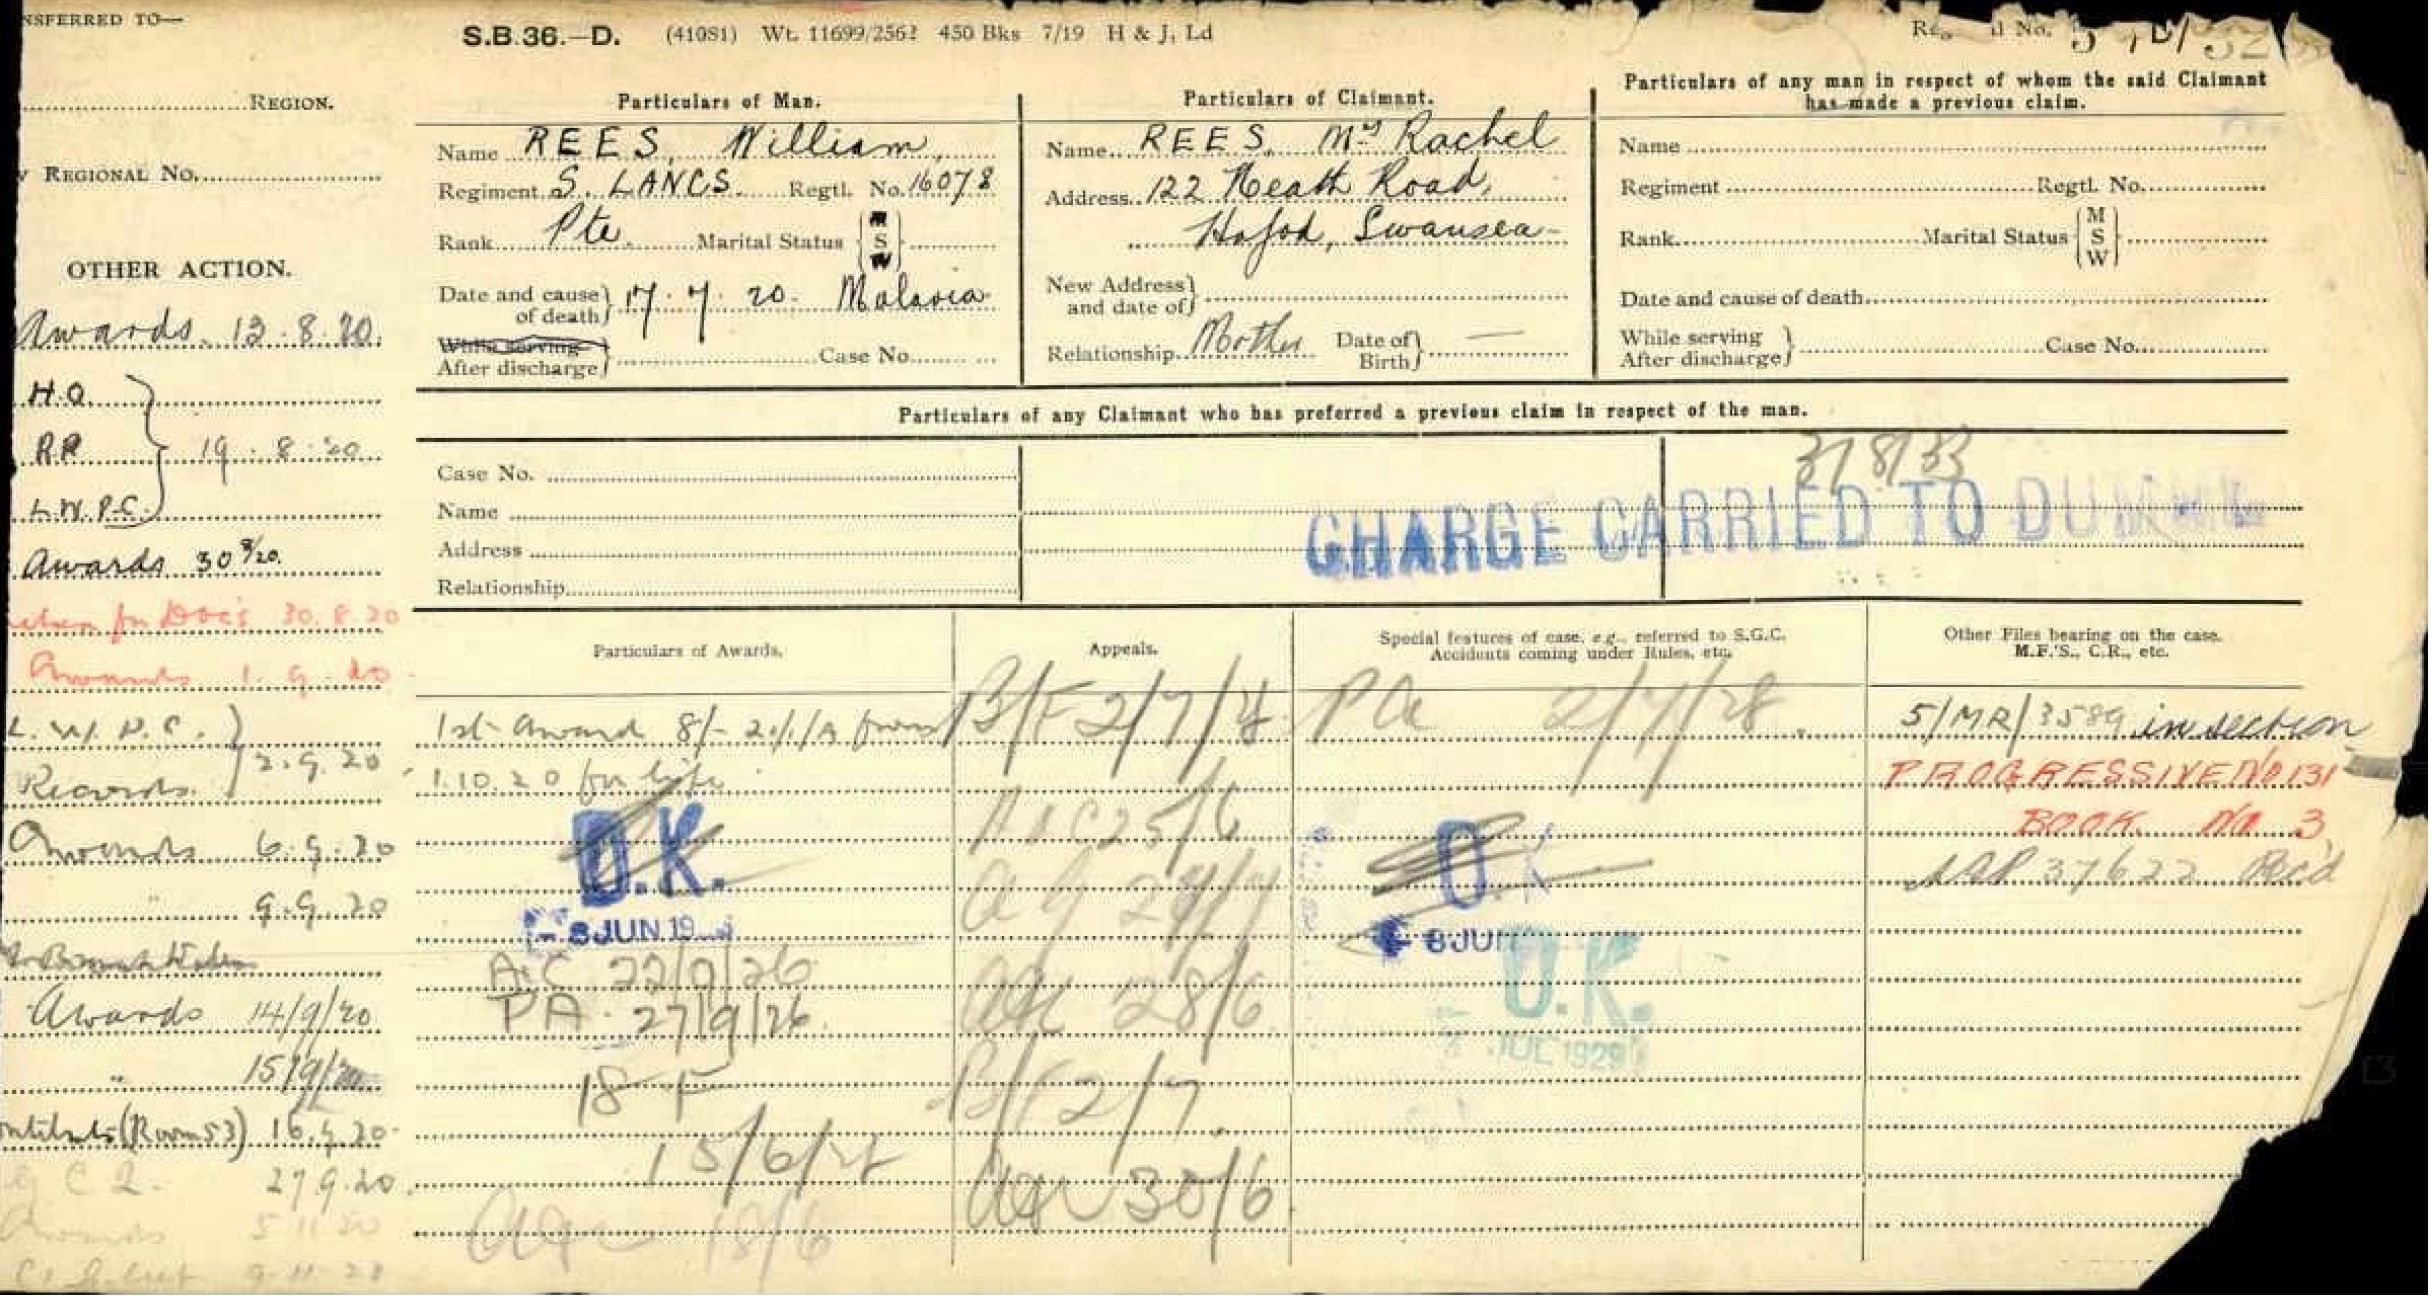 NSFERRED TO—
REGION.
REGIONAL NO.
OTHER ACTION.
Awards. 13.8.20.
H.Q.
R.P.
19.8.20
L.W.P.C.
Awards 30 8/20.
for Doc's 30.8.20
Awards 1.9.20
L.W.P.C.
2.9.20
Records
Awards 6.9.20
" 9.9.20
Awards 14/9/20
" 15/9/20
(Room 53) 16.9.20
27.9.20
Awards 5.11.20
9.11.20
S.B.36.—D. (41081) Wt. 11699/2562 450 Bks 7/19 H & J, Ld
No. 5
Particulars of Man.
Name REES, William,
Regiment S. LANCS. Regtl. No. 16078
Rank Pte. Marital Status M S W
Date and cause of death 17.7.20. Malaria
Whilst serving
After discharge Case No.
Particulars of Claimant.
Name REES, Mrs Rachel
Address 122 Neath Road,
Hafod, Swansea
New Address and date of
Relationship Mother Date of Birth —
Particulars of any man in respect of whom the said Claimant
has made a previous claim.
Name
Regiment Regtl. No.
Rank Marital Status M S W
Date and cause of death
While serving
After discharge Case No.
Particulars of any Claimant who has preferred a previous claim in respect of the man.
Case No.
Name
Address
Relationship
31/8/33
CHARGE CARRIED TO
Particulars of Awards.
1st Award 8/- 20%/A from
1.10.20 for life
O.K.
8 JUN 19
A.C 22/9/26
PA. 27/9/26.
18 F
15/6/
18/6
Appeals.
B/F 2/7/
25/6
28/6
B/F 2/7.
30/6
Special features of case, e.g., referred to S.G.C.
Accidents coming under Rules, etc.
PA 2/7/28.
O.K
8 JUN
O.K.
JUL 1929
Other Files bearing on the case.
M.F.'S., C.R., etc.
5/MR/3589 in section
PROGRESSIVE No 131
BOOK No 3
37622 Rec'd